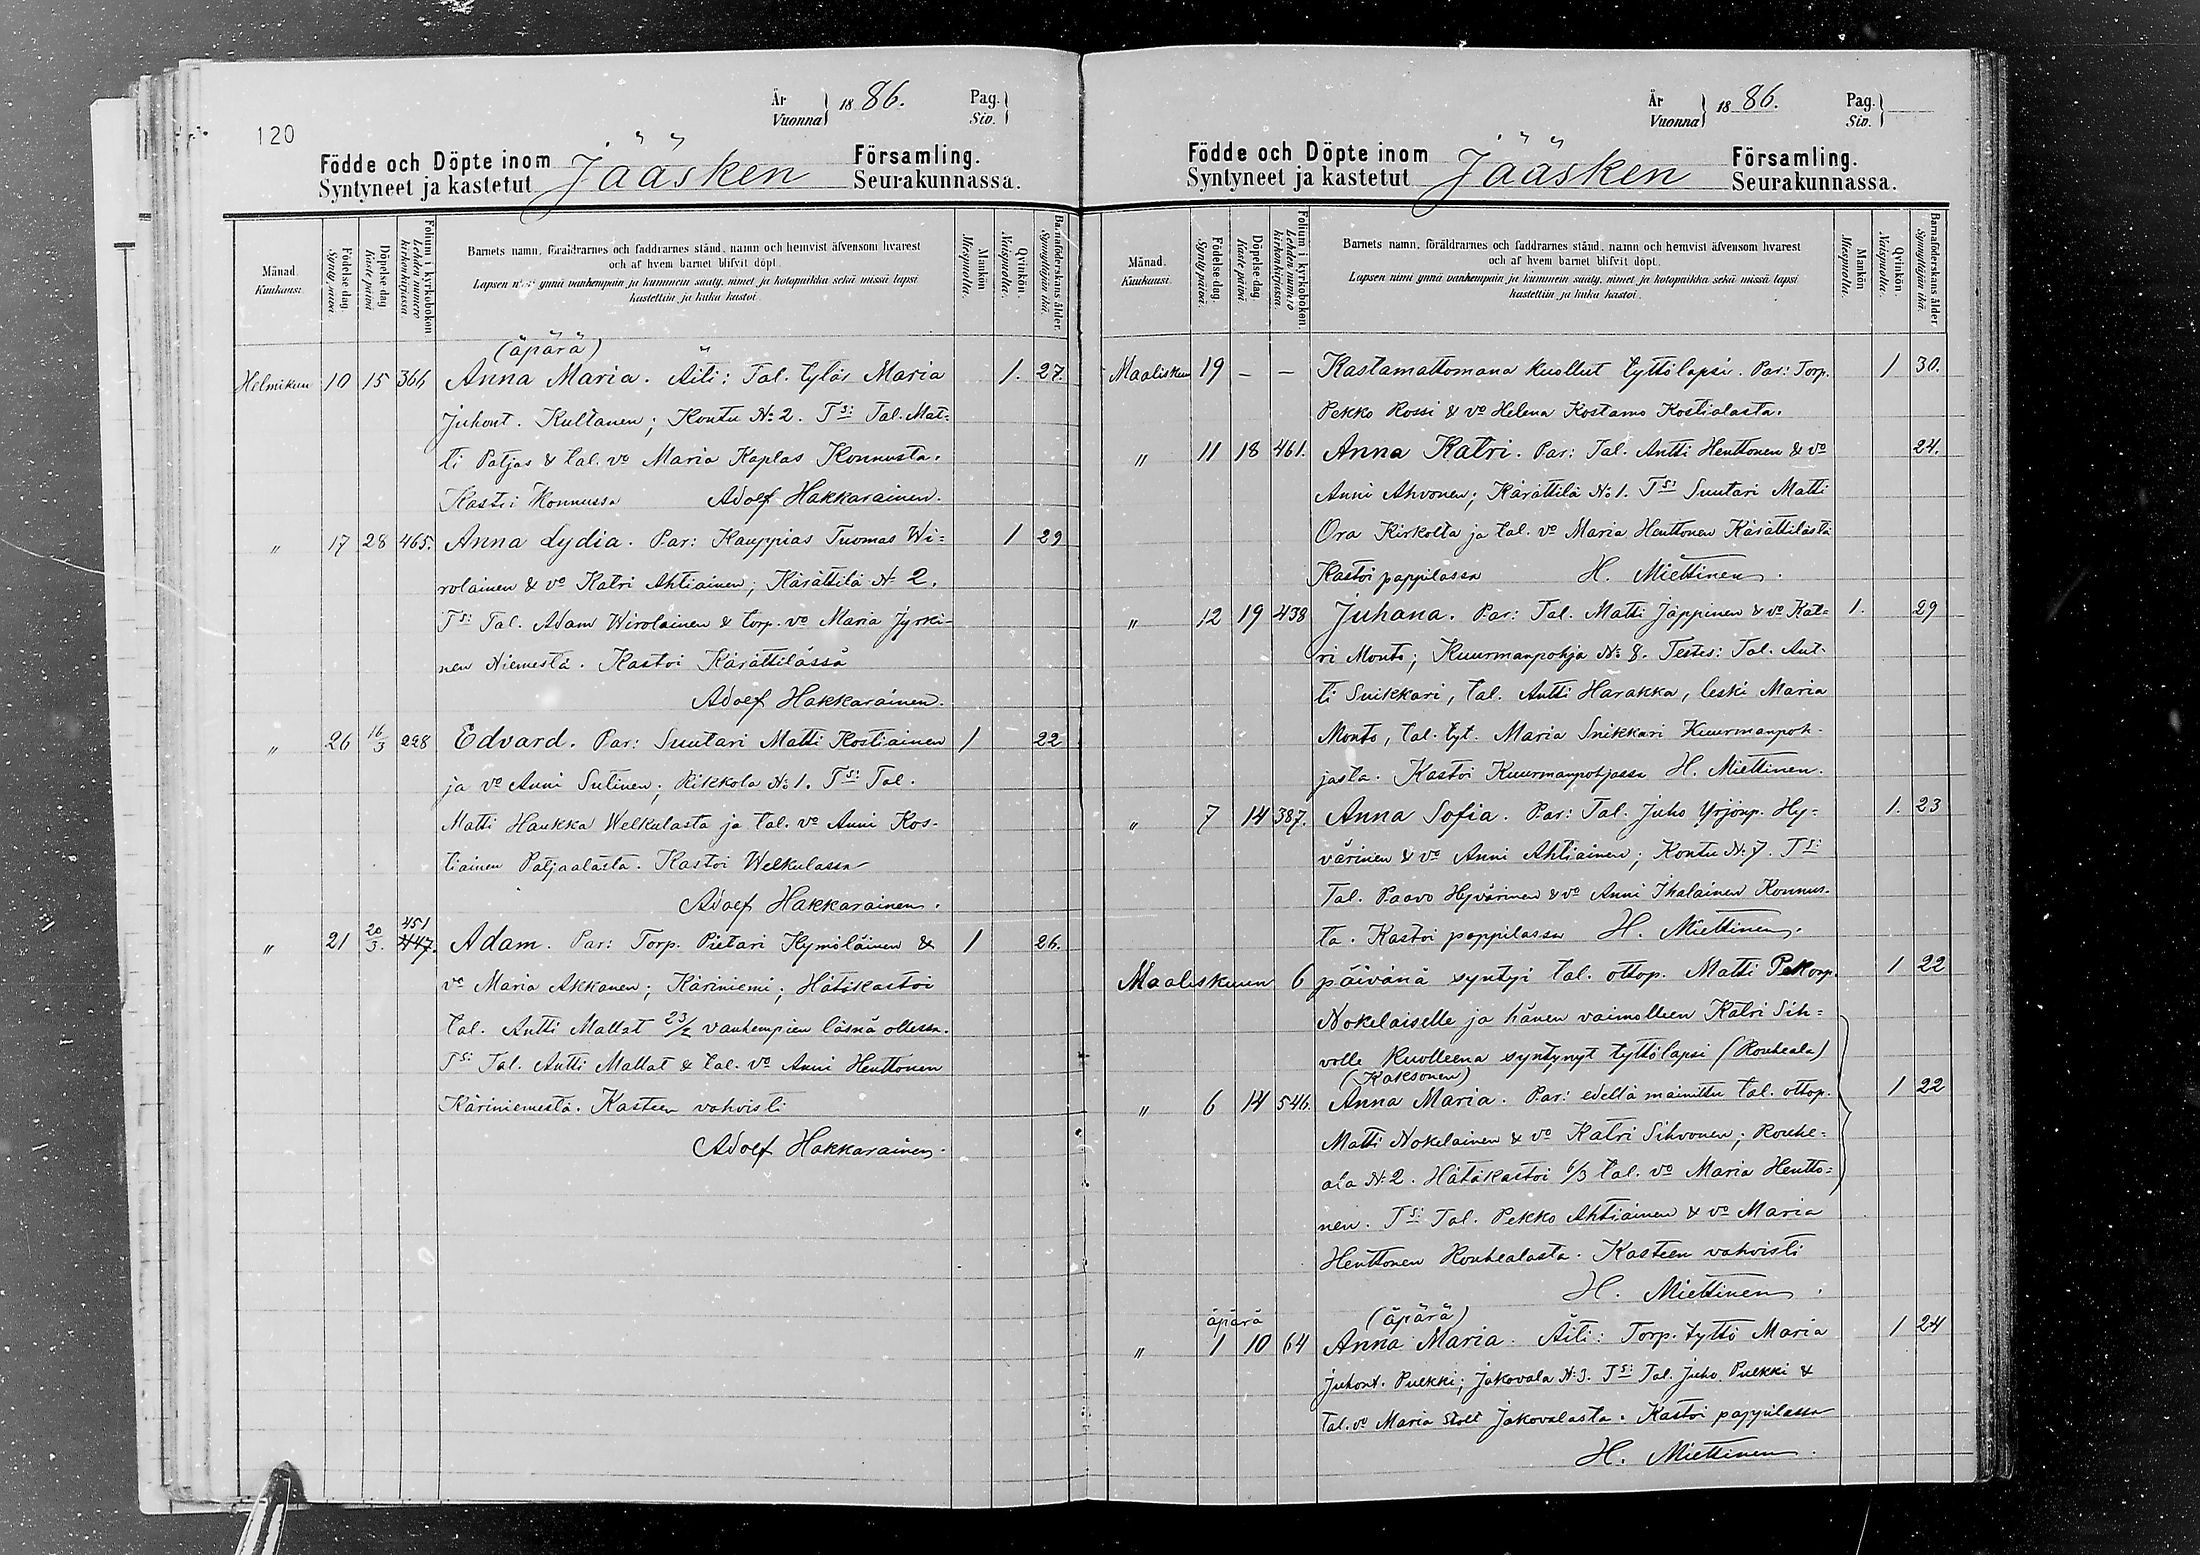 120
År
Vuonna } 1886. Pag.
Siv. }
Födde och Döpte inom
Syntyneet ja kastetut Jääsken Församling.
Seurakunnassa.
Månad. Kuukausi.
Födelse dag.
Döpelse dag. Kaste päivä
Folium i kyrkoboken Lehden numero kirkonkirjassa
Barnets namn, föräldrarnes och faddrarnes stånd, namn och hemvist äfvensom hvarest
och af hvem barnet blifvit döpt.
Lapsen nimi ynnä vanhempain ja kummein sääty, nimet ja kotopaikka sekä missä lapsi
kastettiin ja kuka kastoi.
Mankön Miespuolia.
Qvinkön. Naispuolia.
Barnaföderskans ålder. Synnyttäjän ikä.
(äpärä)
Helmikuu 10 15 366 Anna Maria. Äiti: Tal. tytär Maria 1. 27.
Juhont. Kultanen; Kontu No 2. Ts: Tal. Mat=
ti Paljas & tal. vo Maria Kaplas Konnusta.
Kastoi Konnussa Adolf Hakkarainen.
" 17 28 465. Anna Lydia. Par: Kauppias Tuomas Wi= 1 29
rolainen & vo Katri Ahtiainen; Kärättilä No 2.
Ts: Tal. Adam Wirolainen & torp. vo Maria Jyrki-
nen Niemestä. Kastoi Kärättilässä
Adolf Hakkarainen.
" 26 16/3 228 Edvard. Par: Suutari Matti Kostiainen 1 22
ja vo Anni Sutinen; Rikkola No 1. Ts: Tal.
Matti Haukka Welkulasta ja tal. vo Anni Kos-
tiainen Patjaalasta. Kastoi Welkulassa
Adolf Hakkarainen.
451
" 21 20/3. 447. Adam. Par: Torp. Pietari Kymöläinen & 1 26.
vo Maria Akkanen; Käriniemi; Hätäkastoi
tal. Antti Mallat 23/2 vanhempien läsnä ollessa.
Ts: Tal. Antti Mallat & tal. vo Anni Henttonen
Käriniemestä. Kasteen vahvisti
Adolf Hakkarainen.
År
Vuonna } 1886. Pag.
Siv. }
Födde och Döpte inom
Syntyneet ja kastetut Jääsken Församling.
Seurakunnassa.
Månad. Kuukausi.
Födelse dag. Synty päivä.
Döpelse dag. Kaste päivä.
Folium i kyrkoboken Lehden numero kirkonkirjassa.
Barnets namn, föräldrarnes och faddrarnes stånd, namn och hemvist äfvensom hvarest
och af hvem barnet blifvit döpt.
Lapsen nimi ynnä vanhempain ja kummein sääty, nimet ja kotopaikka sekä missä lapsi
kastettiin ja kuka kastoi.
Mankön Miespuolia.
Qvinkön. Naispuolia.
Barnaföderskans ålder Synnyttäjän ikä.
Maaliskuu 19 – – Kastamattomana kuollut tyttölapsi. Par: Torp. 1 30.
Pekko Rossi & vo Helena Kostamo Kostialasta.
" 11 18 461. Anna Katri. Par: Tal. Antti Henttonen & vo 24.
Anni Ahvonen; Kärättilä No 1. Ts: Suutari Matti
Ora Kirkolta ja tal. vo Maria Henttonen Kärättilästä
Kastoi pappilassa H. Miettinen.
" 12 19 438 Juhana. Par: Tal. Matti Jäppinen & vo Kat= 1. 29
ri Monto; Kuurmanpohja No 8. Testes: Tal. Ant-
ti Snikkari, tal. Antti Harakka, leski Maria
Monto, tal. tyt. Maria Snikkari Kuurmanpoh-
jasta. Kastoi Kuurmanpohjassa H. Miettinen.
" 7 14 387. Anna Sofia. Par: Tal. Juho Yrjönp. Hy= 1. 23
värinen & vo Anni Ahtiainen; Kontu No 7. Ts:
Tal. Paavo Hyvärinen & vo Anni Ikalainen Konnus-
ta. Kastoi pappilassa H. Miettinen.
Maaliskuun 6 päivänä syntyi tal. ottop. Matti Pekonp. 1 22
Nokelaiselle ja hänen vaimolleen Katri Sih=
volle kuolleena syntynyt tyttölapsi (Rouheala)
(Kaksonen)
" 6 14 546. Anna Maria. Par: edellä mainittu tal. ottop. 1 22
Matti Nokelainen & vo Katri Sihvonen; Rouhe=
ala No 2. Hätäkastoi 6/3 tal. vo Maria Hentto=
nen. Ts: Tal. Pekko Ahtiainen & vo Maria
Henttonen Rouhealasta. Kasteen vahvisti
H. Miettinen.
äpärä (äpärä)
" 1 10 64 Anna Maria. Äiti: Torp. tyttö Maria 1 24
Juhont. Pulkki; Jakovala No 3. Ts: Tal. Juho Pulkki &
tal. vo Maria Stolt Jakovalasta. Kastoi pappilassa
H. Miettinen.